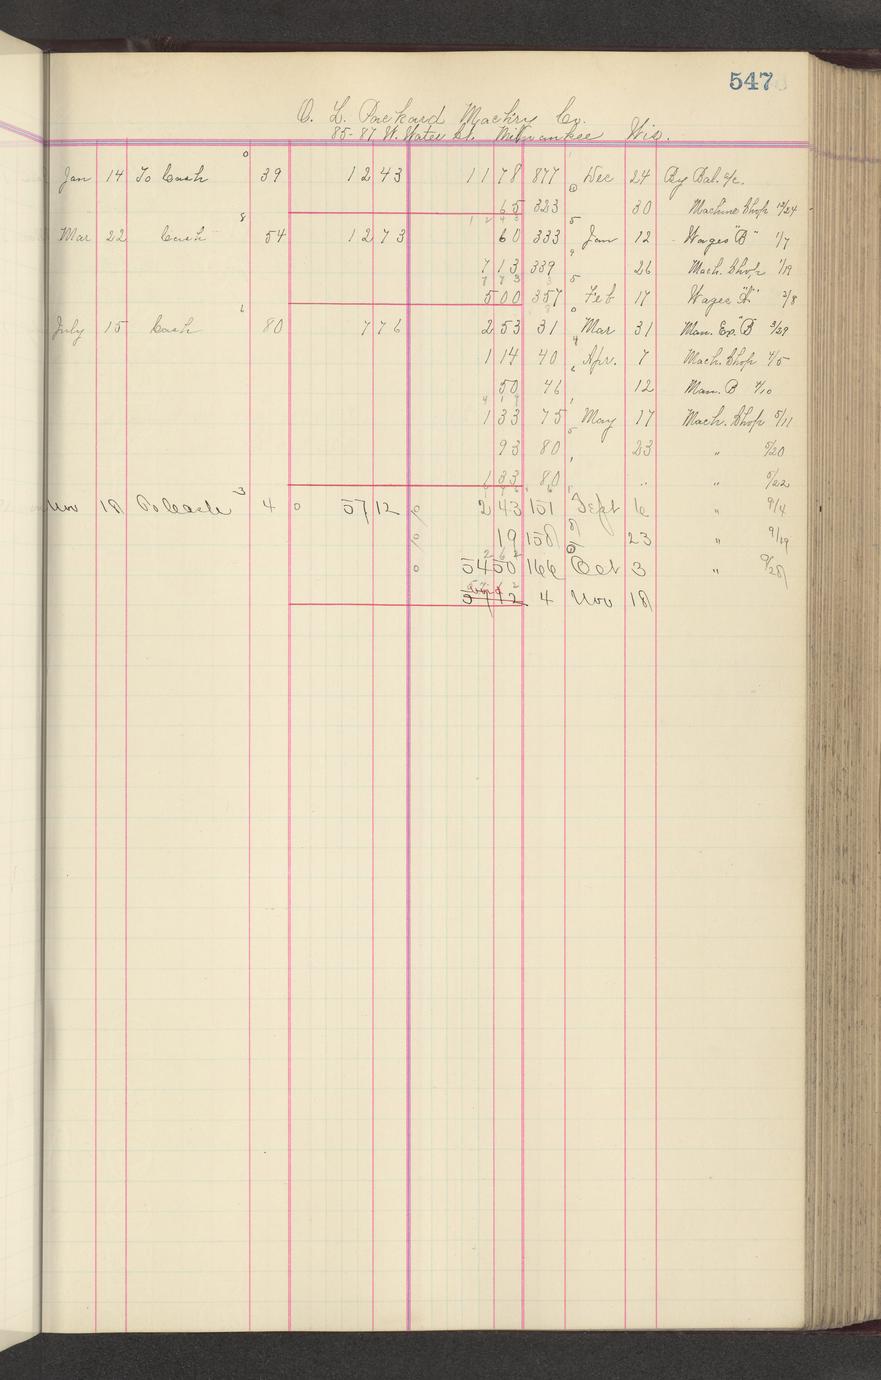 547
O. L. Packard Mach'ry Co.
85-87 W. Water St. Milwaukee Wis.
Jan 14 To Cash 0 39 12 43 11 78 877 Dec 24 By Bal. a/c.
65 323 0 30 Machine Shop 12/24
12 43
Mar 22 Cash 8 54 12 73 60 333 5 Jan 12 Wages "B" 1/7
7 13 339 9 26 Mach. Shop 1/19
7 73
5 00 357 5 Feb 17 Wages "A" 2/8
July 15 Cash 6 80 7 76 2 53 31 0 Mar 31 Man. Exp. "B" 3/29
1 14 40 4 Apr. 7 Mach. Shop 4/5
50 46 6 12 Man. B 4/10
4 19
1 33 75 1 May 17 Mach. Shop 5/11
93 80 5 23 " 5/20
1 33 80 1 " " 5/22
Nov 18 To Cash 3 4 0 57 12 2 43 151 Sept 6 " 9/4
19 158 8 23 " 9/19
2 62
0 54 50 166 0 Oct 3 " 9/28
57 12 4 Nov 18